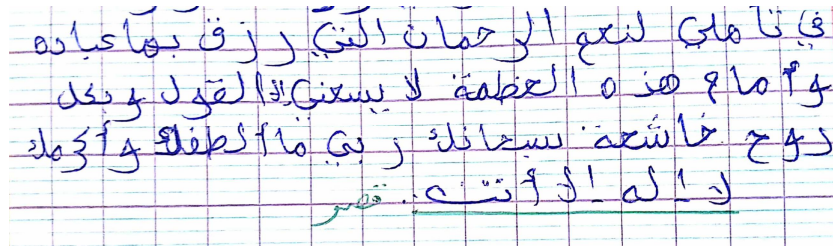 في تأملي لنعم الرحمان التي رزق بها عباده
وأمام هذه العظمة لا يسعني إلا القول وبكل
روح خاشعة سبحانك ربي ما ألطفك وأكرمك
لا إله إلا أنت.